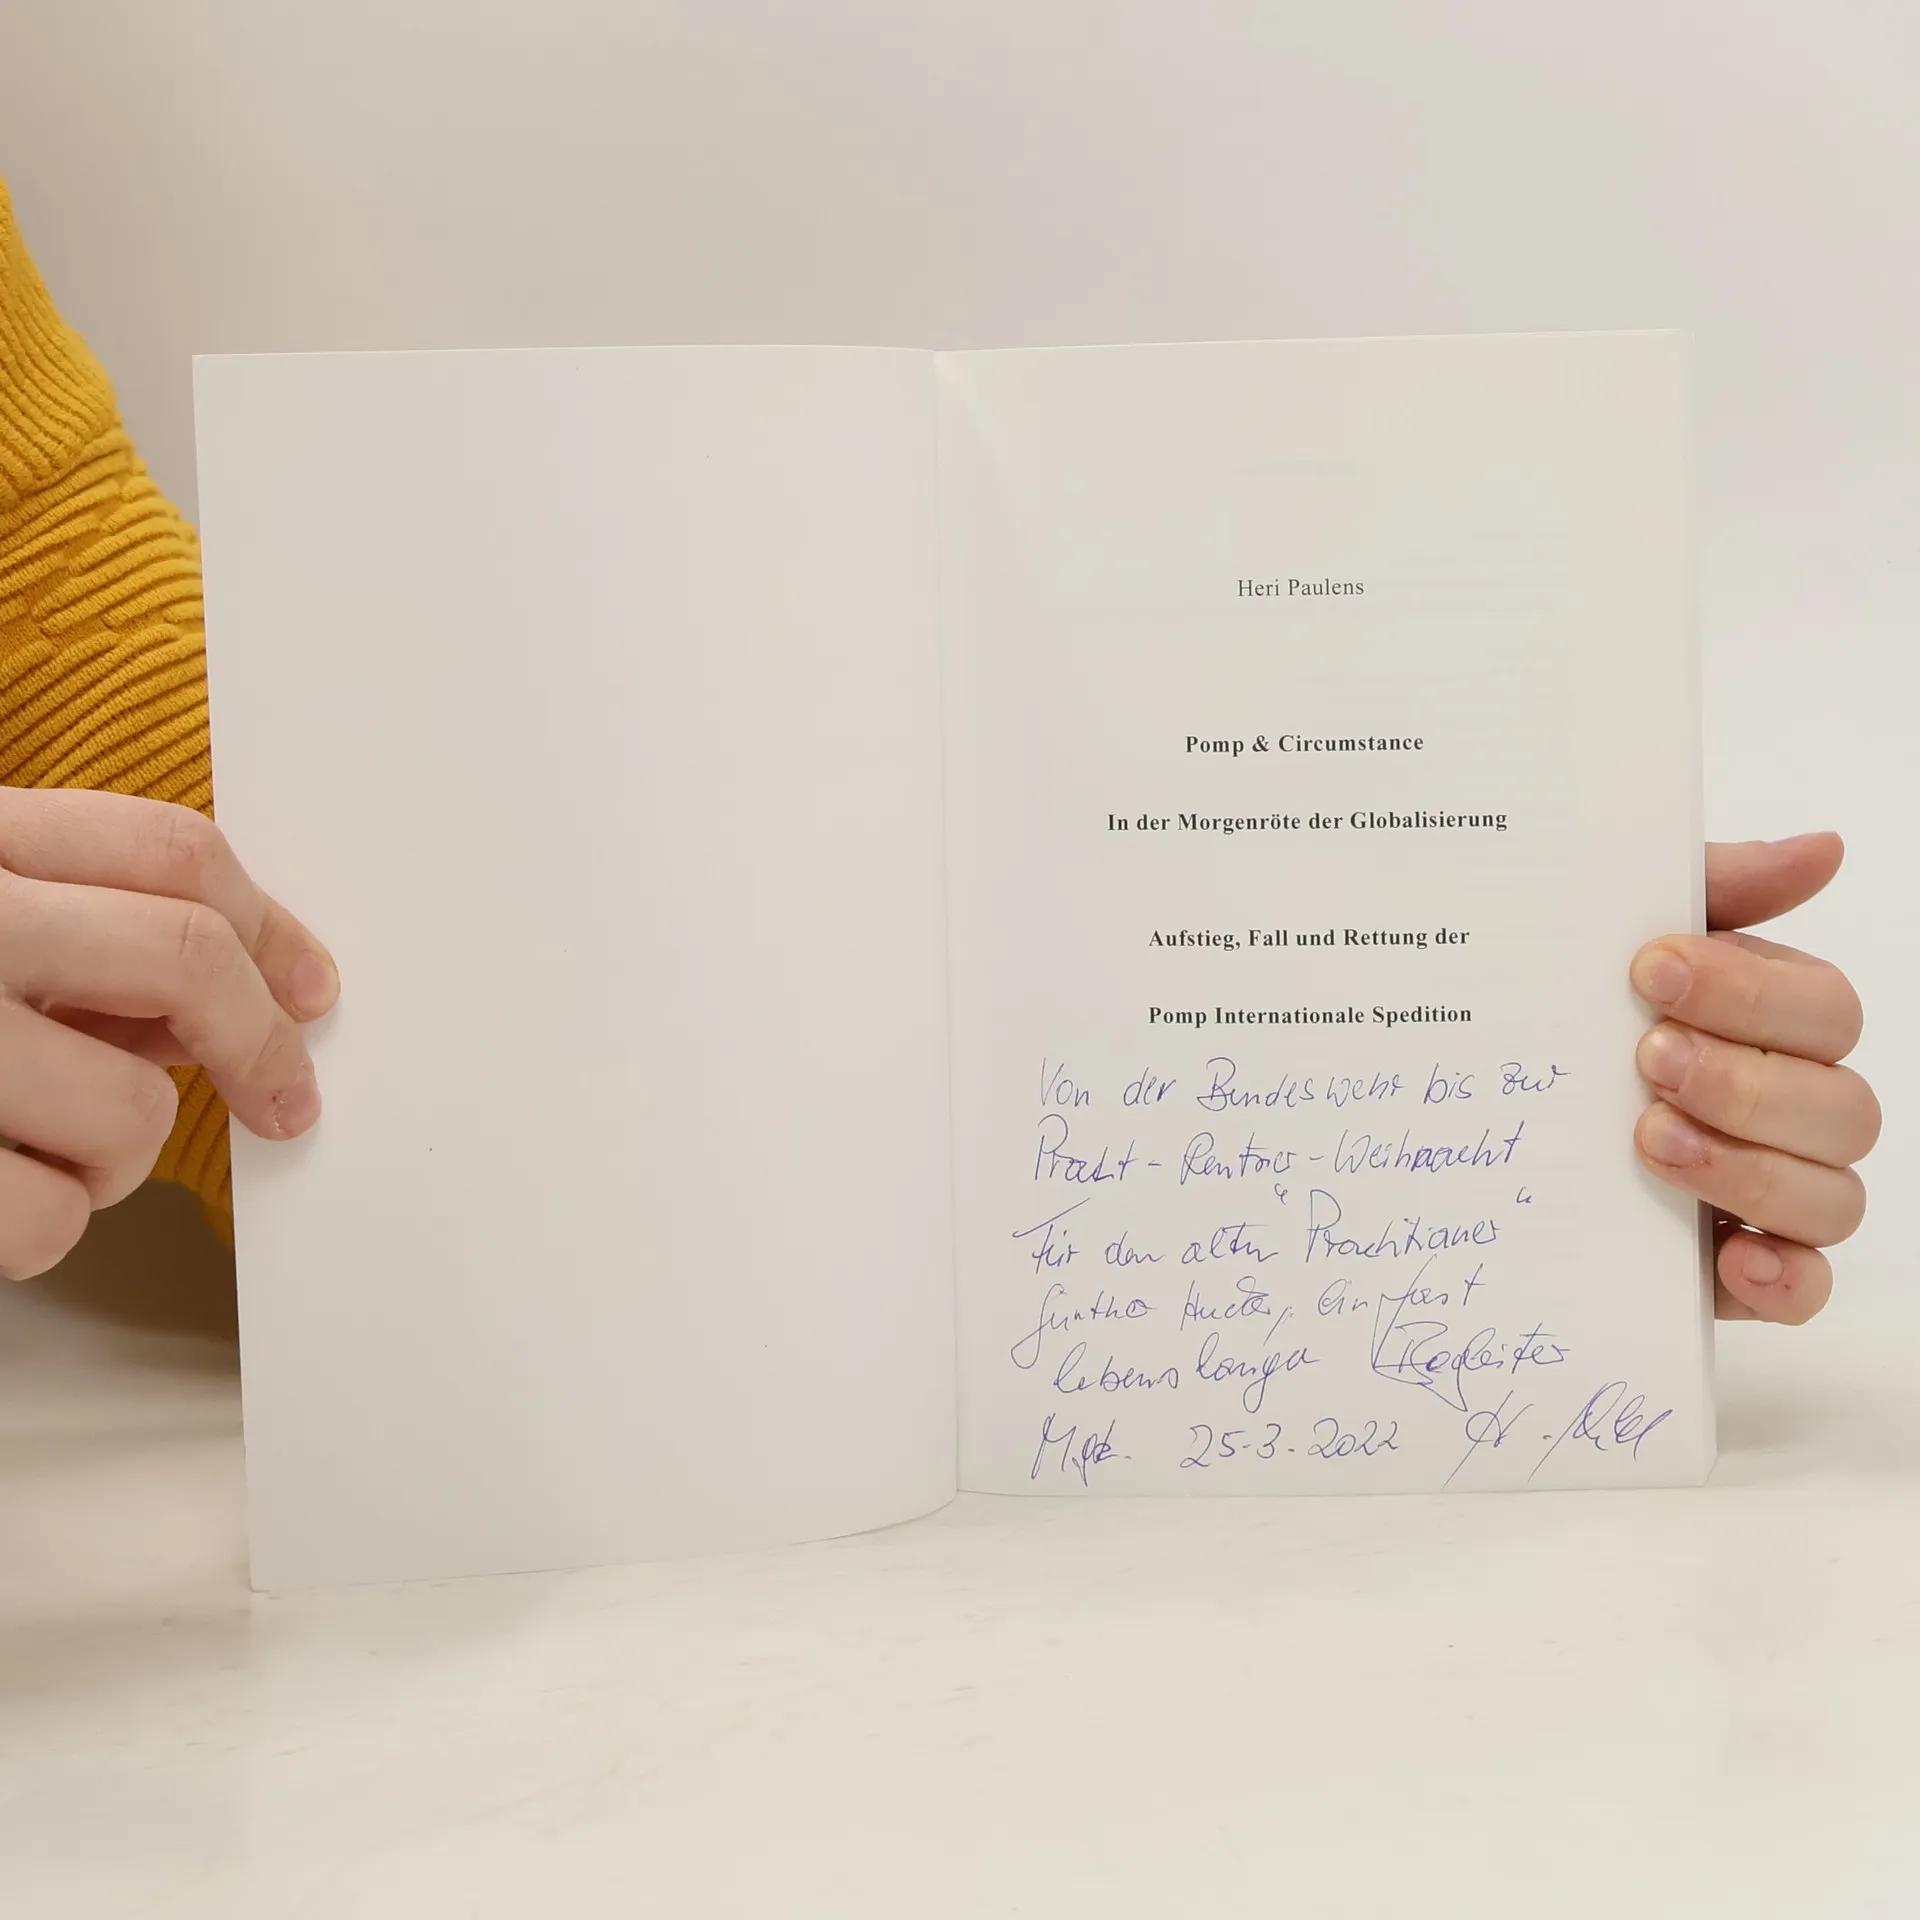 Heri Paulens
Pomp & Circumstance
In der Morgenröte der Globalisierung
Aufstieg, Fall und Rettung der
Pomp Internationale Spedition
Von der Bundeswehr bis zur
Pracht-Rentner-Weihnacht
Für den alten "Prachtianer"
Günther, ein fast
lebenslanger Begleiter
25-3-2022 H.